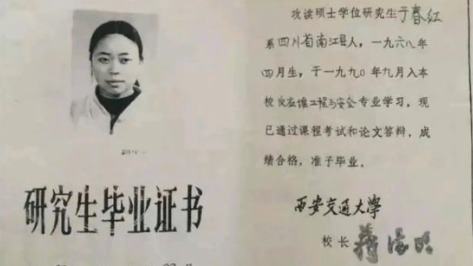 研究生毕业证书
攻读硕士学位研究生于春红
系四川省南江县人，一九六八年
四月生，于一九九〇年九月入本
校反应堆工程与安全专业学习，现
已通过课程考试和论文答辩，成
绩合格，准予毕业。
西安交通大学
校长 蒋德明